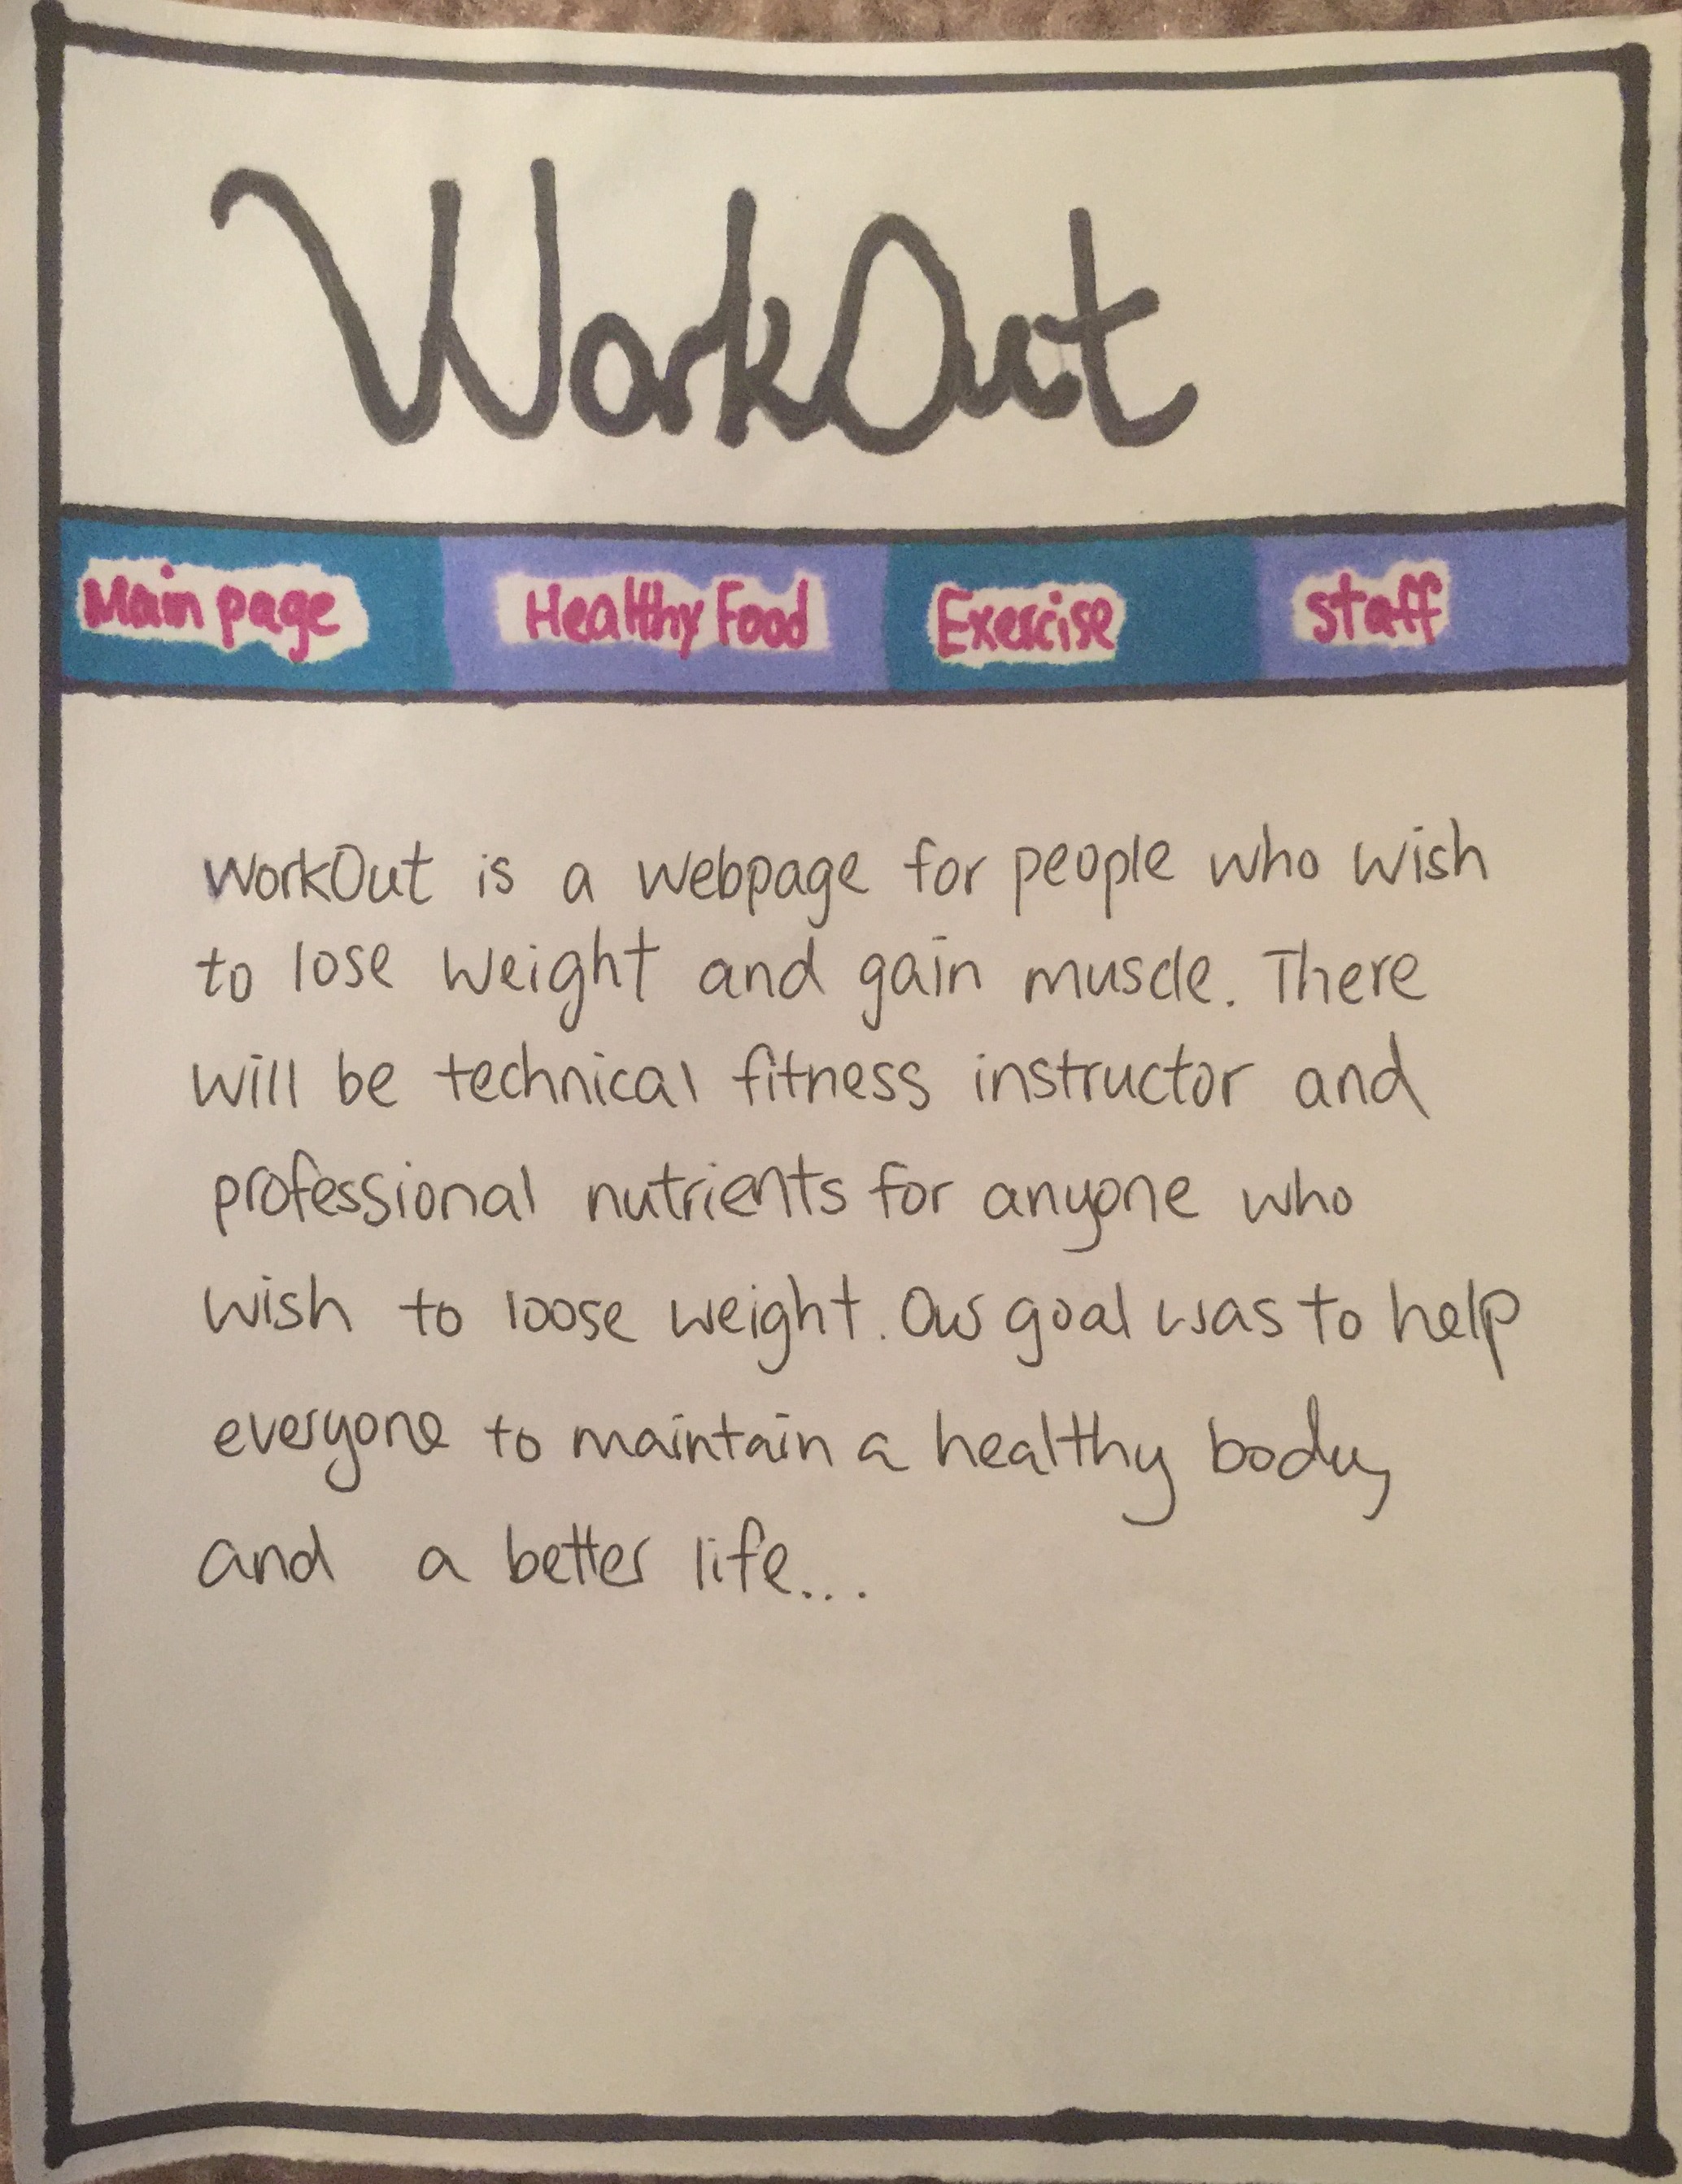 WorkOut
Main page Healthy Food Exercise staff
WorkOut is a webpage for people who wish
to lose weight and gain muscle. There
will be technical fitness instructor and
professional nutrients for anyone who
wish to loose weight. Our goal was to help
everyone to maintain a healthy body,
and a better life...